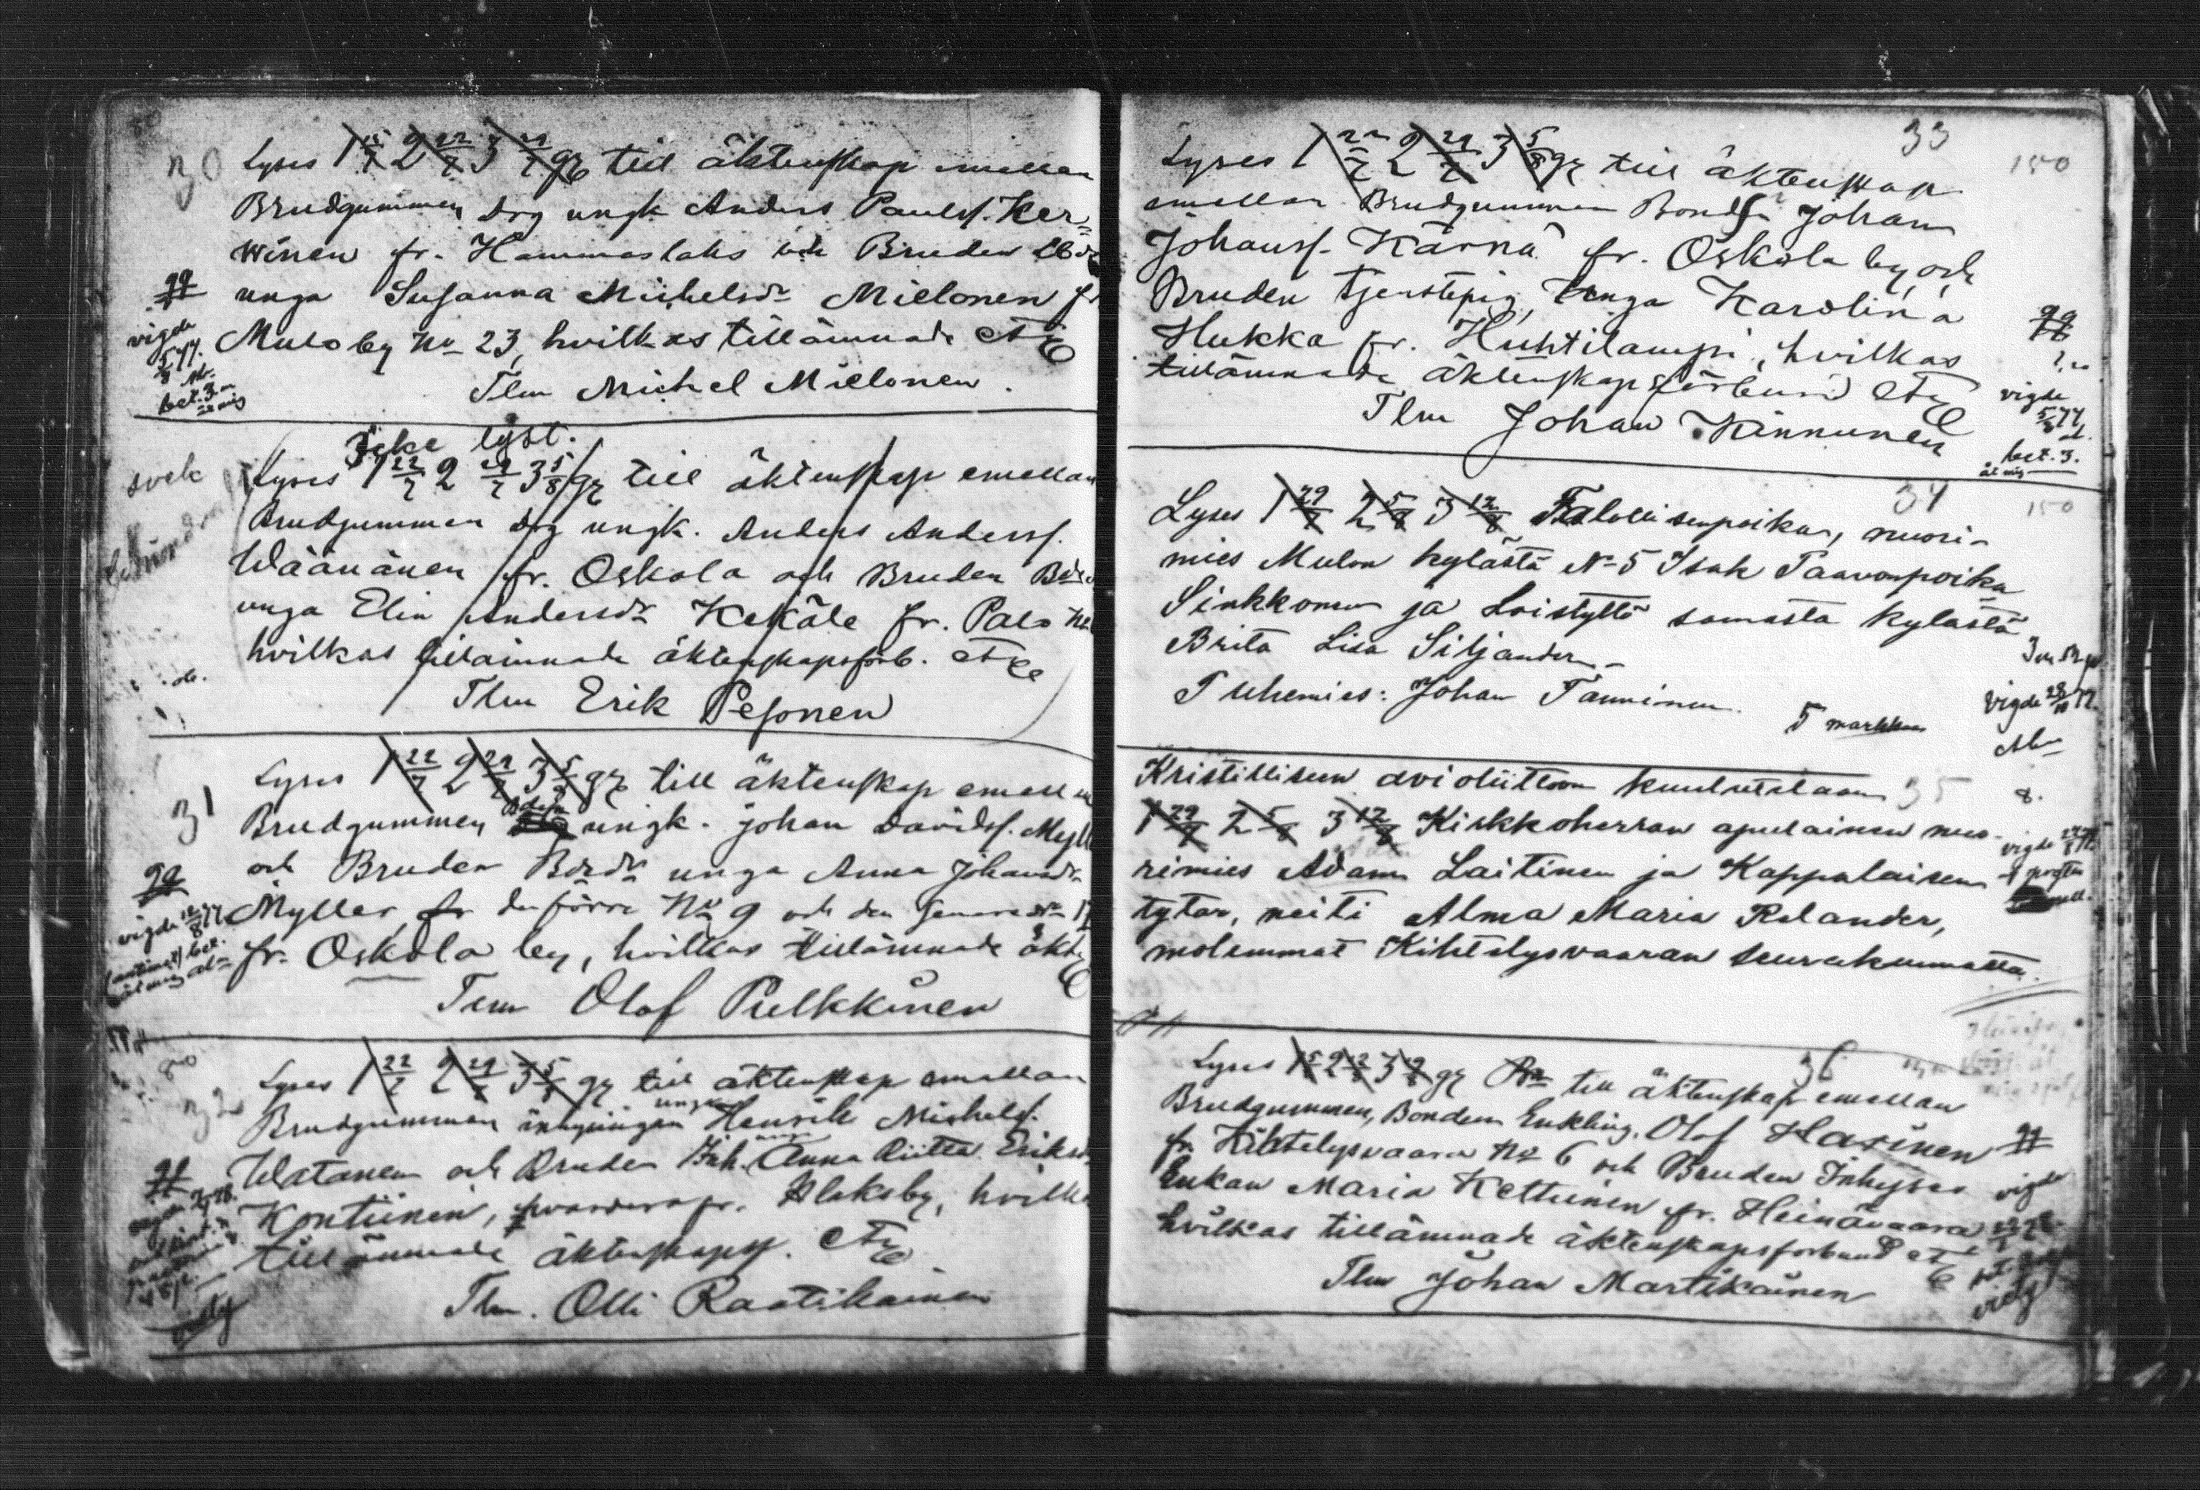 30
Lyses 1 15/7 2 22/7 3 29/7 gg till äktenskap emellan
Brudgummen Drg ungk. Anders Paulsf. Ker=
winen fr. Hammaslaks och Bruden Bd
unga Susanna Michelsdr Mielonen fr
Mulo by No 23, hvilkas tillämnade etc
Tlm Michel Mielonen.
vigde
5/8 77.
bet. 3.
Icke lyst.
Lyses 1 22/7 2 29/7 3 5/8 gg till äktenskap emellan
Brudgummen Drg ungk. Anders Andersf.
Wäänänen fr. Oskola och Bruden Bd
unga Elin Andersdr Kekäle fr. Palo No
hvilkas tillämnade äktenskapsförb. etc
Tlm Erik Pesonen
31
Lyses 1 22/7 2 29/7 3 5/8 gg till äktenskap emellan
Brudgummen ungk. Johan Davidsf. Myll
och Bruden Bdr unga Anna Johansdr
Myller, fr den förra No 9 och den senare No 17
fr. Oskola by, hvilkas tillämnade äkt. etc
Tlm Olof Pulkkinen
vigde 12/8 77
32
Lyses 1 22/7 2 29/7 3 5/8 gg till äktenskap emellan
Brudgummen ynglingen Henrik Michelsf.
Watanen och Bruden Inh. unga Anna Riitta Eriksd
Kontiinen, hvardera fr. Alaksby, hvilka
tillämnade äktenskapsf. etc
Tlm. Olli Raatikainen
33
150
Lyses 1 22/7 2 29/7 3 5/8 gg till äktenskap
emellan Brudgummen Bonds. Johan
Johansf. Kärnä fr. Oskola by, och
Bruden tjenstepig. unga Karolina
Hukka fr. Huhtilampi, hvilkas
tillämnade äktenskapsförbund etc
Tlm Johan Kinnunen
vigde
5/8 77
bet. 3.
34
150
Lyses 1 29/7 2 5/8 3 12/8 Talollisenpoika, nuori-
mies Mulon kylästä No 5 Isak Paavonpoika
Sinkkonen ja Loistyttö samasta kylästä
Brita Lisa Siljander.
Puhemies: Johan Tanninen.
5 markkaa
Vigde 28/10 77.
Kristilliseen avioliittoon kuulutetaan 35
1 29/7 2 5/8 3 12/8 Kirkkoherran apulainen nuo-
rimies Adam Laitinen ja Kappalaisen
tytär, neiti Alma Maria Relander,
molemmat Kihtelysvaaran seurakunnasta.
36
Lyses 1 5/8 2 12/8 3 19/8 gg till äktenskap emellan
Brudgummen, Bonden Enkling. Olof Hasinen
fr. Kihtelysvaara No 6 och Bruden Inhyses
Enkan Maria Kettunen fr. Heinävaara
hvilkas tillämnade äktenskapsförbund etc
Tlm Johan Martikainen
vigde